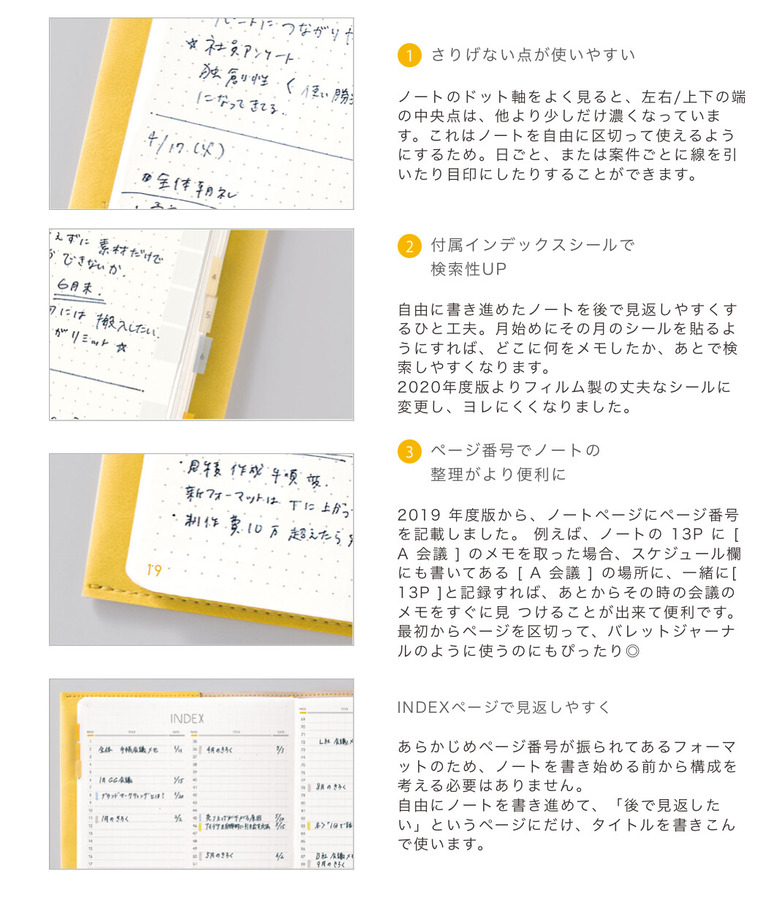 ☆社員アンケート
になってきてる。
4/17.(火)
1
さりげない点が使いやすい
ノートのドット軸をよく見ると、左右/上下の端
の中央点は、他より少しだけ濃くなっていま
す。これはノートを自由に区切って使えるよう
にするため。日ごと、または案件ごとに線を引
いたり目印にしたりすることができます。
えずに 素材だけで
できないか.
6月末.
には 搬入したい.
がリミット ☆
4
5
6
2
付属インデックスシールで
検索性UP
自由に書き進めたノートを後で見返しやすくす
るひと工夫。月始めにその月のシールを貼るよ
うにすれば、どこに何をメモしたか、あとで検
索しやすくなります。
2020年度版よりフィルム製の丈夫なシールに
変更し、ヨレにくくなりました。
新フォーマットは 下に上がっ
・制作費10万 超えたら
19
3
ページ番号でノートの
整理がより便利に
2019 年度版から、ノートページにページ番号
を記載しました。 例えば、ノートの 13P に [
A 会議 ] のメモを取った場合、スケジュール欄
にも書いてある [ A 会議 ] の場所に、一緒に[
13P ]と記録すれば、あとからその時の会議の
メモをすぐに見 つけることが出来て便利です。
最初からページを区切って、バレットジャーナ
ルのように使うのにもぴったり◎
INDEX
全体 手帳会議メモ
4月のきろく
1月のきろく
5月のきろく
8月のきろく
9月のきろく
INDEXページで見返しやすく
あらかじめページ番号が振られてあるフォーマ
ットのため、ノートを書き始める前から構成を
考える必要はありません。
自由にノートを書き進めて、「後で見返した
い」というページにだけ、タイトルを書きこん
で使います。